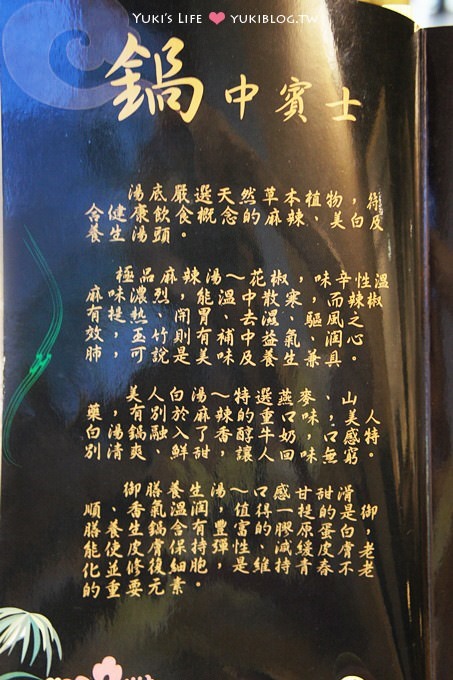 YUKI'S LIFE ♥ YUKIBLOG.TW
鍋中賓士
湯底嚴選天然草本植物，符
合健康飲食概念的麻辣、美白及
養生湯頭。
極品麻辣湯～花椒，味辛性溫
麻味濃烈，能溫中散寒，而辣椒
有提熱、開胃、去濕、驅風之
效，玉竹則有補中益氣、潤心
肺，可說是美味及養生兼具。
美人白湯～特選燕麥、山
藥，有別於麻辣的重口味，美人
白湯鍋融入了香醇牛奶，口感特
別清爽、鮮甜，讓人回味無窮。
御膳養生湯～口感甘甜滑
順、香氣溫潤，值得一提的是御
膳養生鍋含有豐富的膠原蛋白，
能使皮膚保持彈性、減緩皮膚老
化並修復細胞，是維持青春不老
的重要元素。